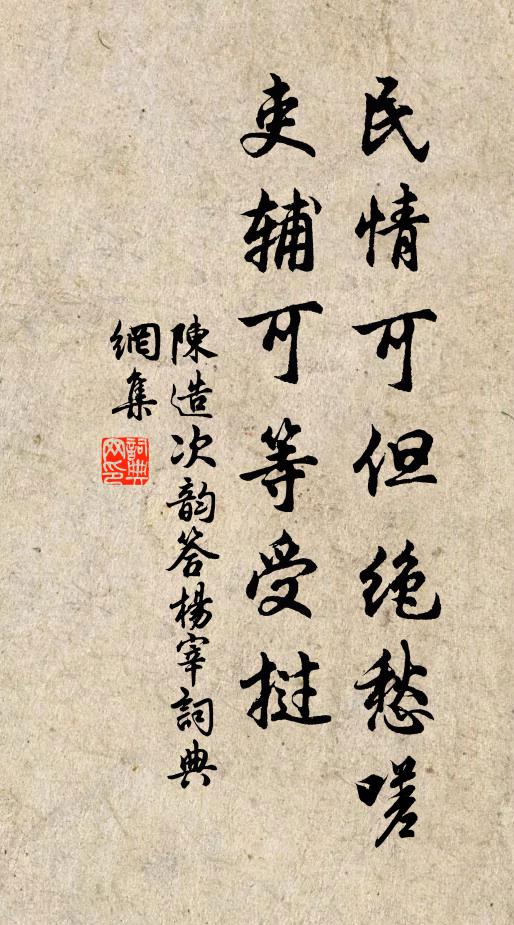 民情可但绝愁嗟
吏辅可等受挞
陳造次韵答楊宰詞典
網集
詞典
网印